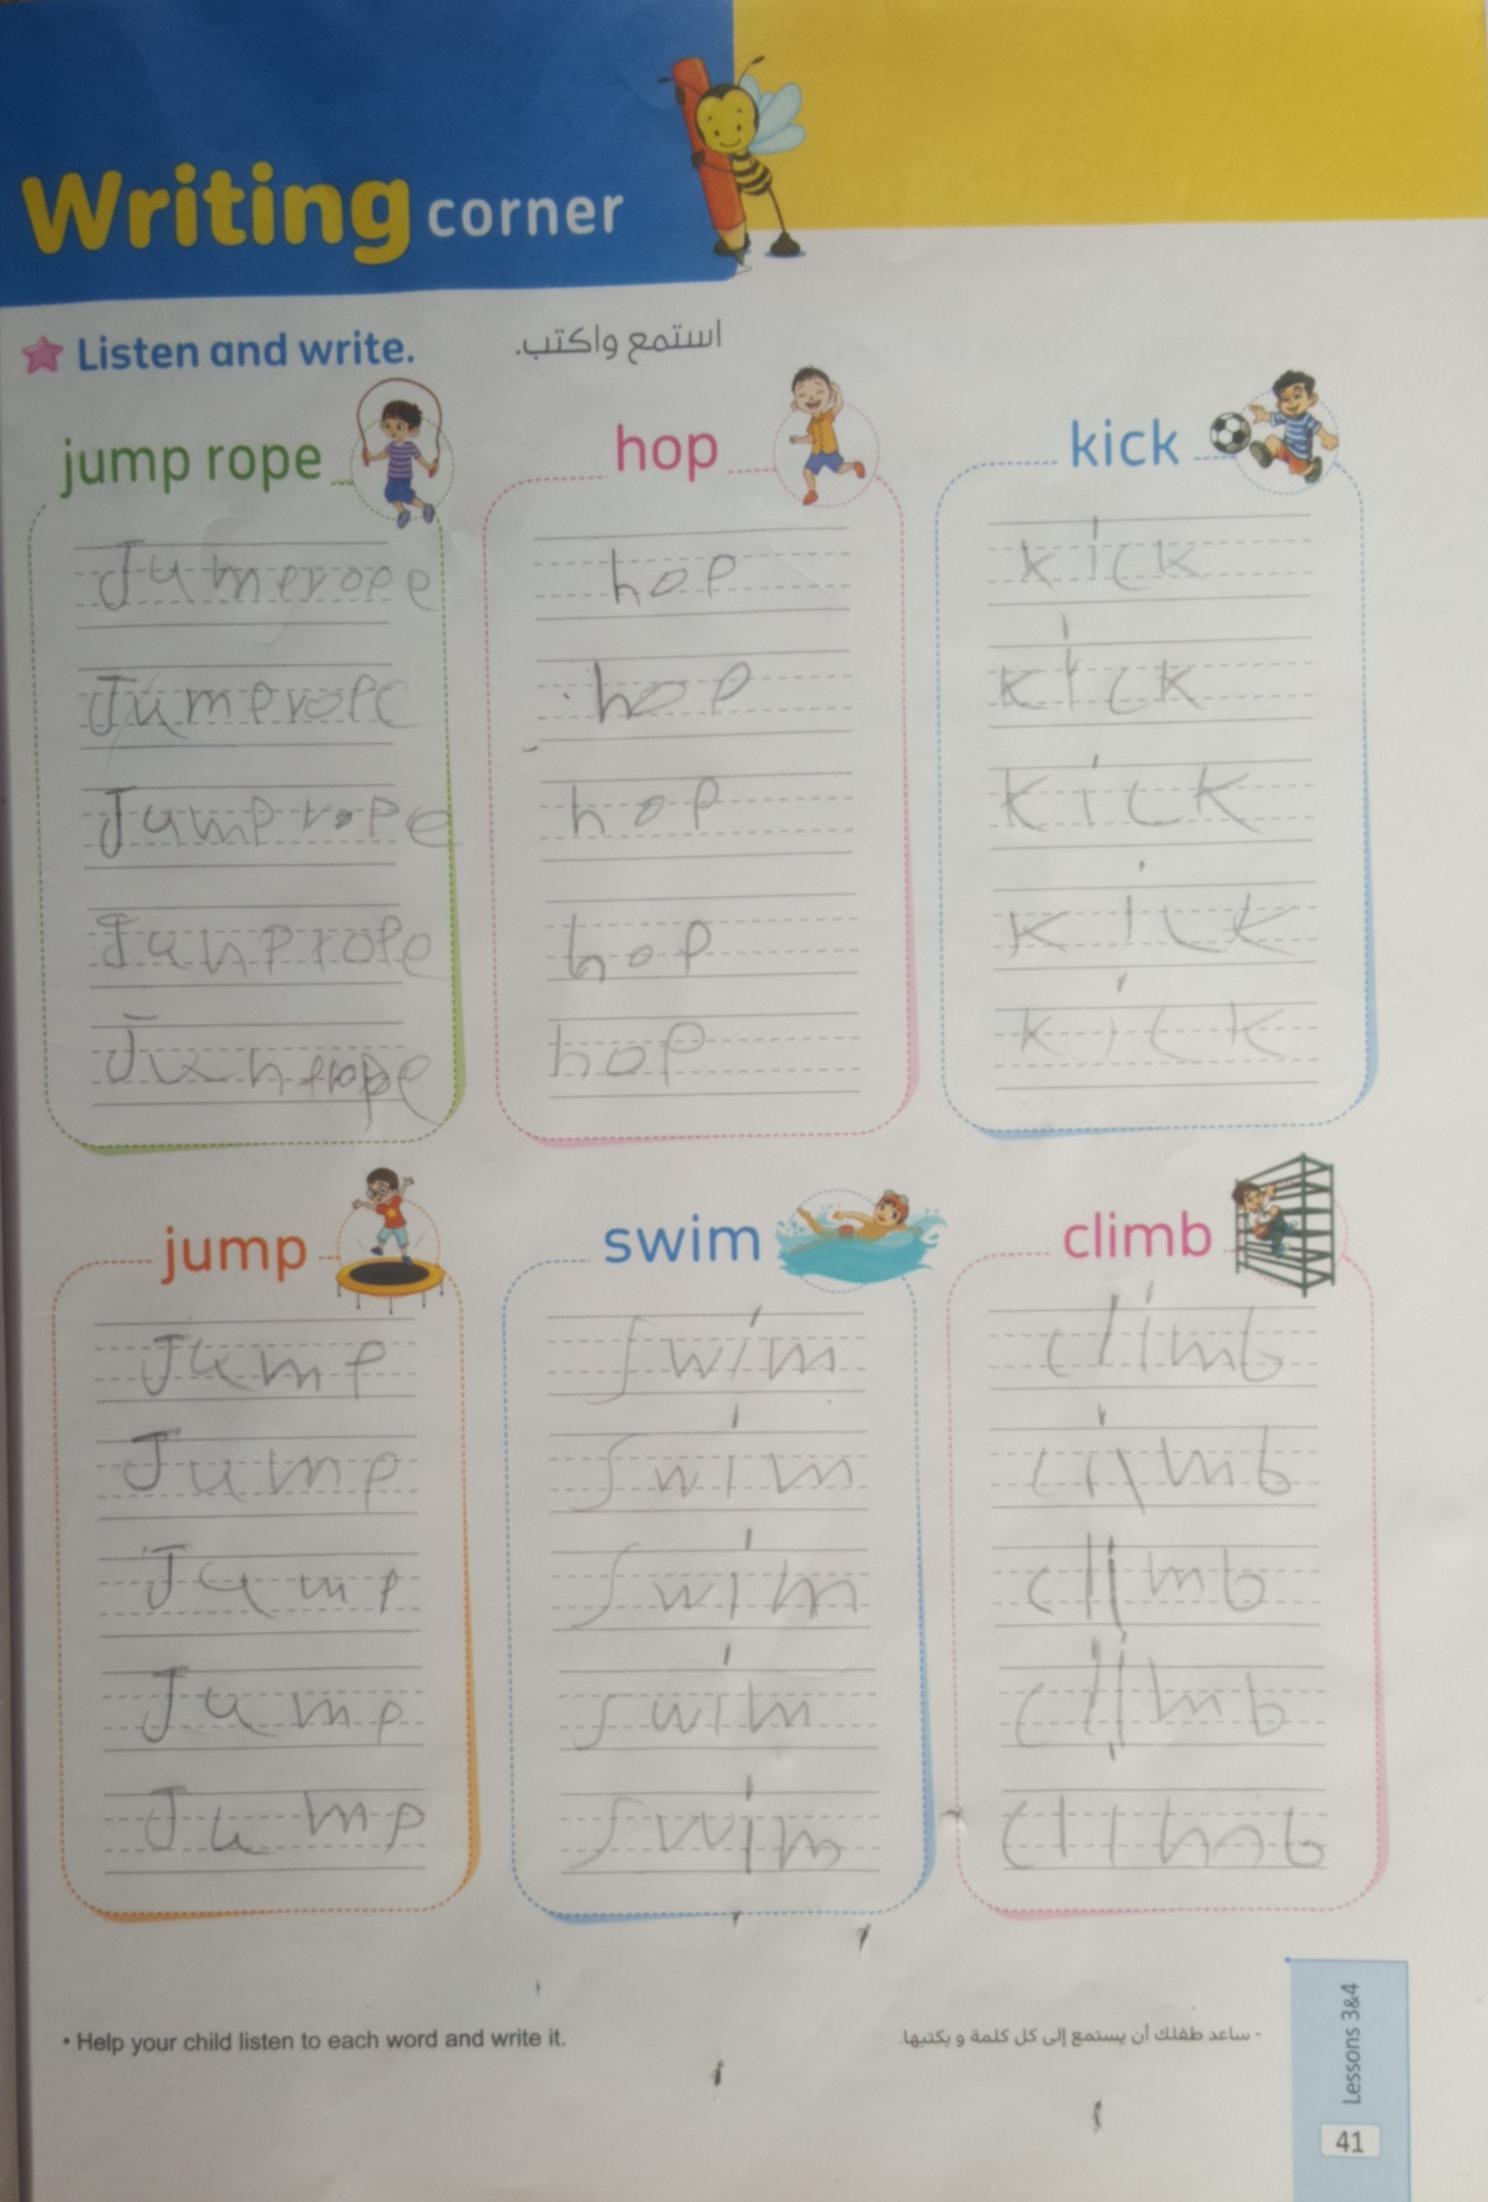 Writing corner
Listen and write.
استمع واكتب.
jump rope
Jumprope
Jumprope
Jumprope
Junprope
Junprope
hop
hop
hop
hop
hop
hop
kick
kick
kick
kick
kick
kick
jump
Jump
Jump
Jump
Jump
Jump
swim
swim
swim
swim
swim
swim
climb
climb
climb
climb
climb
climb
• Help your child listen to each word and write it.
- ساعد طفلك أن يستمع إلى كل كلمة و يكتبها.
Lessons 3&4
41